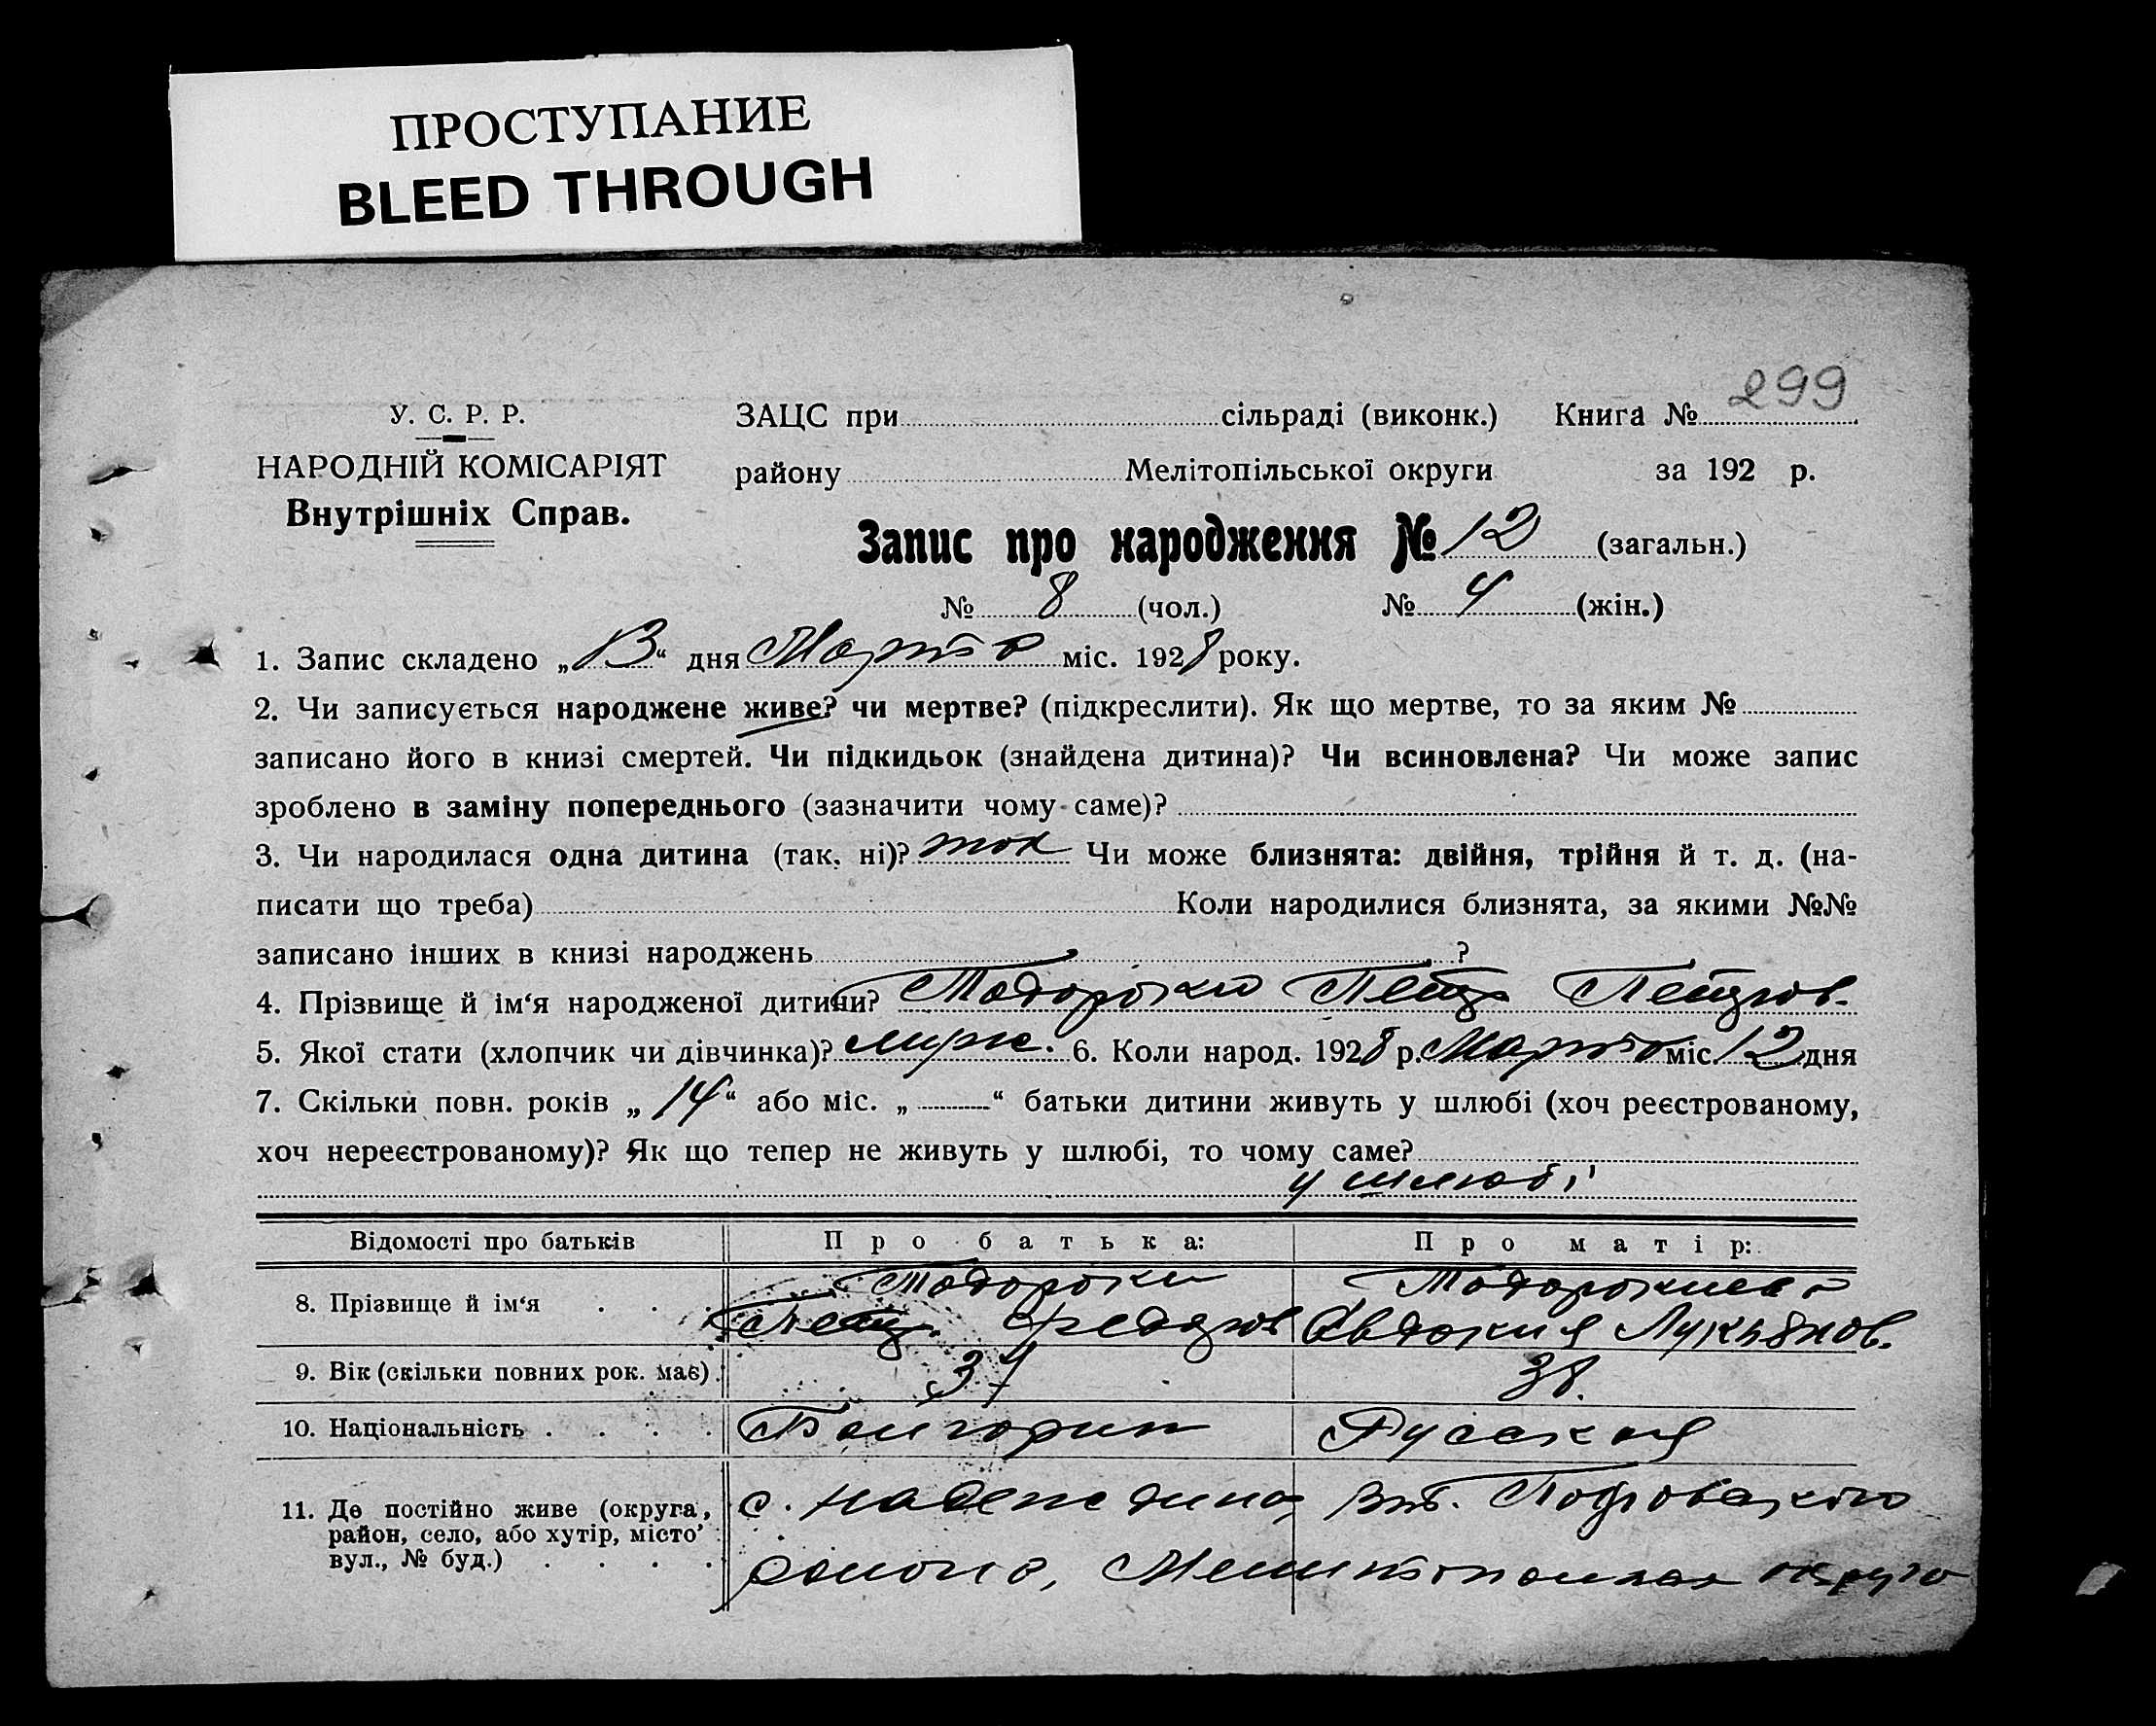 ПРОСТУПАНИЕ
BLEED THROUGH
299
У. С. Р. Р.
НАРОДНІЙ КОМІСАРІЯТ
Внутрішніх Справ.
ЗАЦС при сільраді (виконк.) Книга №
району Мелітопільської округи за 192 р.
Запис про народження № 12 (загальн.)
№ 8 (чол.) № 4 (жін.)
1. Запис складено „13“ дня Марта міс. 1928 року.
2. Чи записується народжене живе? чи мертве? (підкреслити). Як що мертве, то за яким №
записано його в книзі смертей. Чи підкидьок (знайдена дитина)? Чи всиновлена? Чи може запис
зроблено в заміну попереднього (зазначити чому саме)?
3. Чи народилася одна дитина (так, ні)? так Чи може близнята: двійня, трійня й т. д. (на-
писати що треба) Коли народилися близнята, за якими №№
записано інших в книзі народжень ?
4. Прізвище й ім‘я народженої дитини? Петр Петров.
5. Якої стати (хлопчик чи дівчинка)? 6. Коли народ. 1928 р. Марта міс. 12 дня
7. Скільки повн. років „14“ або міс. „ “ батьки дитини живуть у шлюбі (хоч реєстрованому,
хоч нереєстрованому)? Як що тепер не живуть у шлюбі, то чому саме?
у шлюбі
Відомості про батьків Про батька: Про матір:
8. Прізвище й ім‘я
Петр Федоров Евдокия Лукьянов.
9. Вік (скільки повних рок. має) 37 38.
10. Національність Болгорин Русская
11. Де постійно живе (округа,
район, село, або хутір, місто
вул., № буд.)
с. Надеждина
района, округа